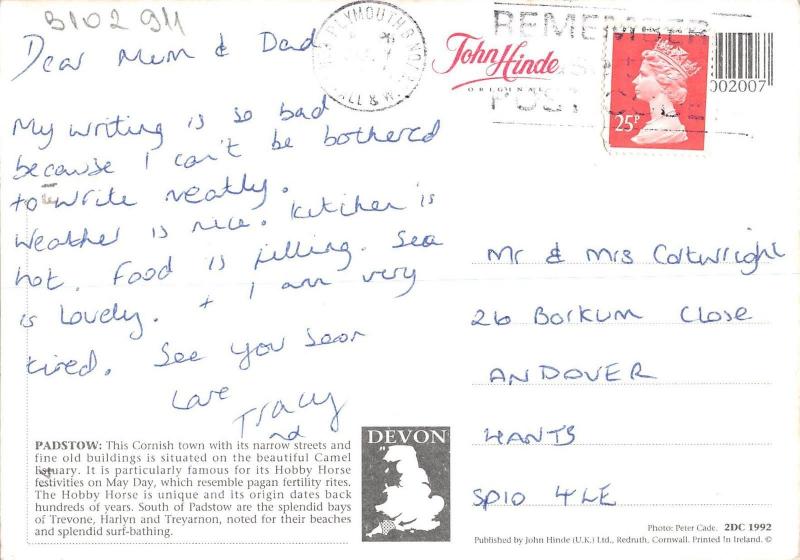 B102 911
Dear Mum & Dad
My writing is so bad
because I can't be bothered
to write neatly.
Weather is nice. Kitchen is
hot. Food is filling. Sea
is lovely. + I am very
tired. See you soon
Love
Tracy
PLYMOUTH
John Hinde
ORIGINAL
REMEMBER
25P
002007
Mr & Mrs Cartwright
26 Borkum Close
ANDOVER
HANTS
SP10 4LE
PADSTOW: This Cornish town with its narrow streets and
fine old buildings is situated on the beautiful Camel
Estuary. It is particularly famous for its Hobby Horse
festivities on May Day, which resemble pagan fertility rites.
The Hobby Horse is unique and its origin dates back
hundreds of years. South of Padstow are the splendid bays
of Trevone, Harlyn and Treyarnon, noted for their beaches
and splendid surf-bathing.
DEVON
Photo: Peter Cade. 2DC 1992
Published by John Hinde (U.K.) Ltd., Redruth, Cornwall. Printed in Ireland. ©